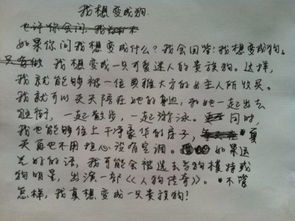 我想变成狗
也许你会问，我为什么
如果你问我想变成什么？我会回答！我想变成狗。
我想变成一只可爱迷人的贵族狗。这样，
我就能够被一位典雅大方的女主人所收买。
我就可以天天陪在她的身边，和她一起出去
逛街，一起散步，一起游泳。同时，
我也能够住上干净豪华的房子，夏
天再也不用担心没有空调。如果运
光好的话，我可能会被送去当狗模特或
狗明星，出演一部《人狗传奇》。不管
怎样，我真想变成一只贵族狗！